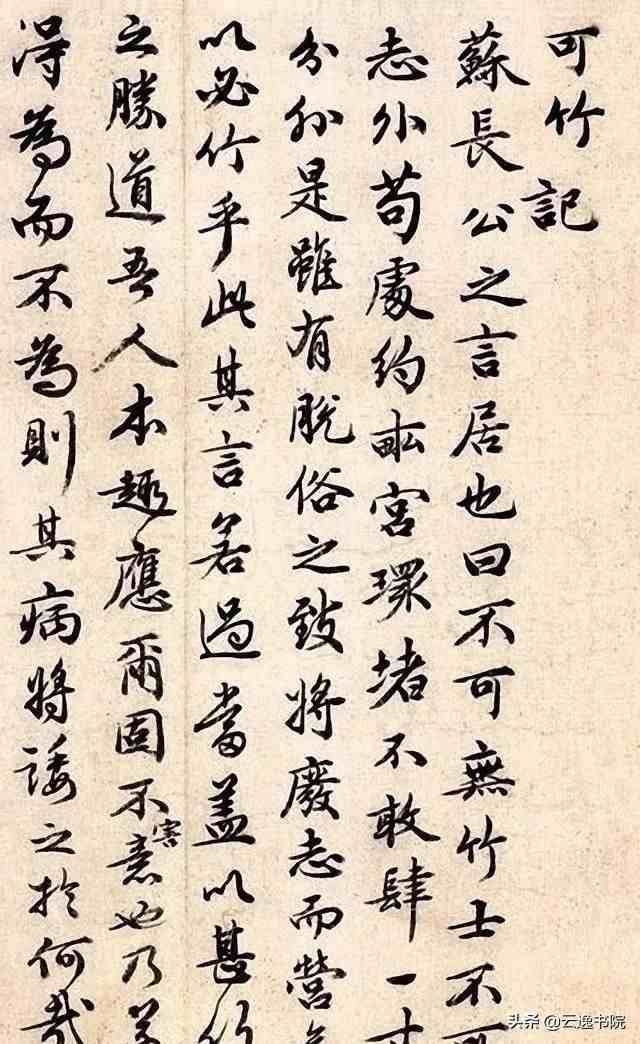 可竹記
蘇長公之言居也曰不可無竹士不可
志小苟處約畝宮環堵不敢肆一寸
分外是雖有脫俗之致將廢志而營
以必竹乎此其言若過當蓋以甚竹
之勝道吾人本趣應爾固不害意也乃
得為而不為則其病將諉之於何哉
头条 @云逸书院